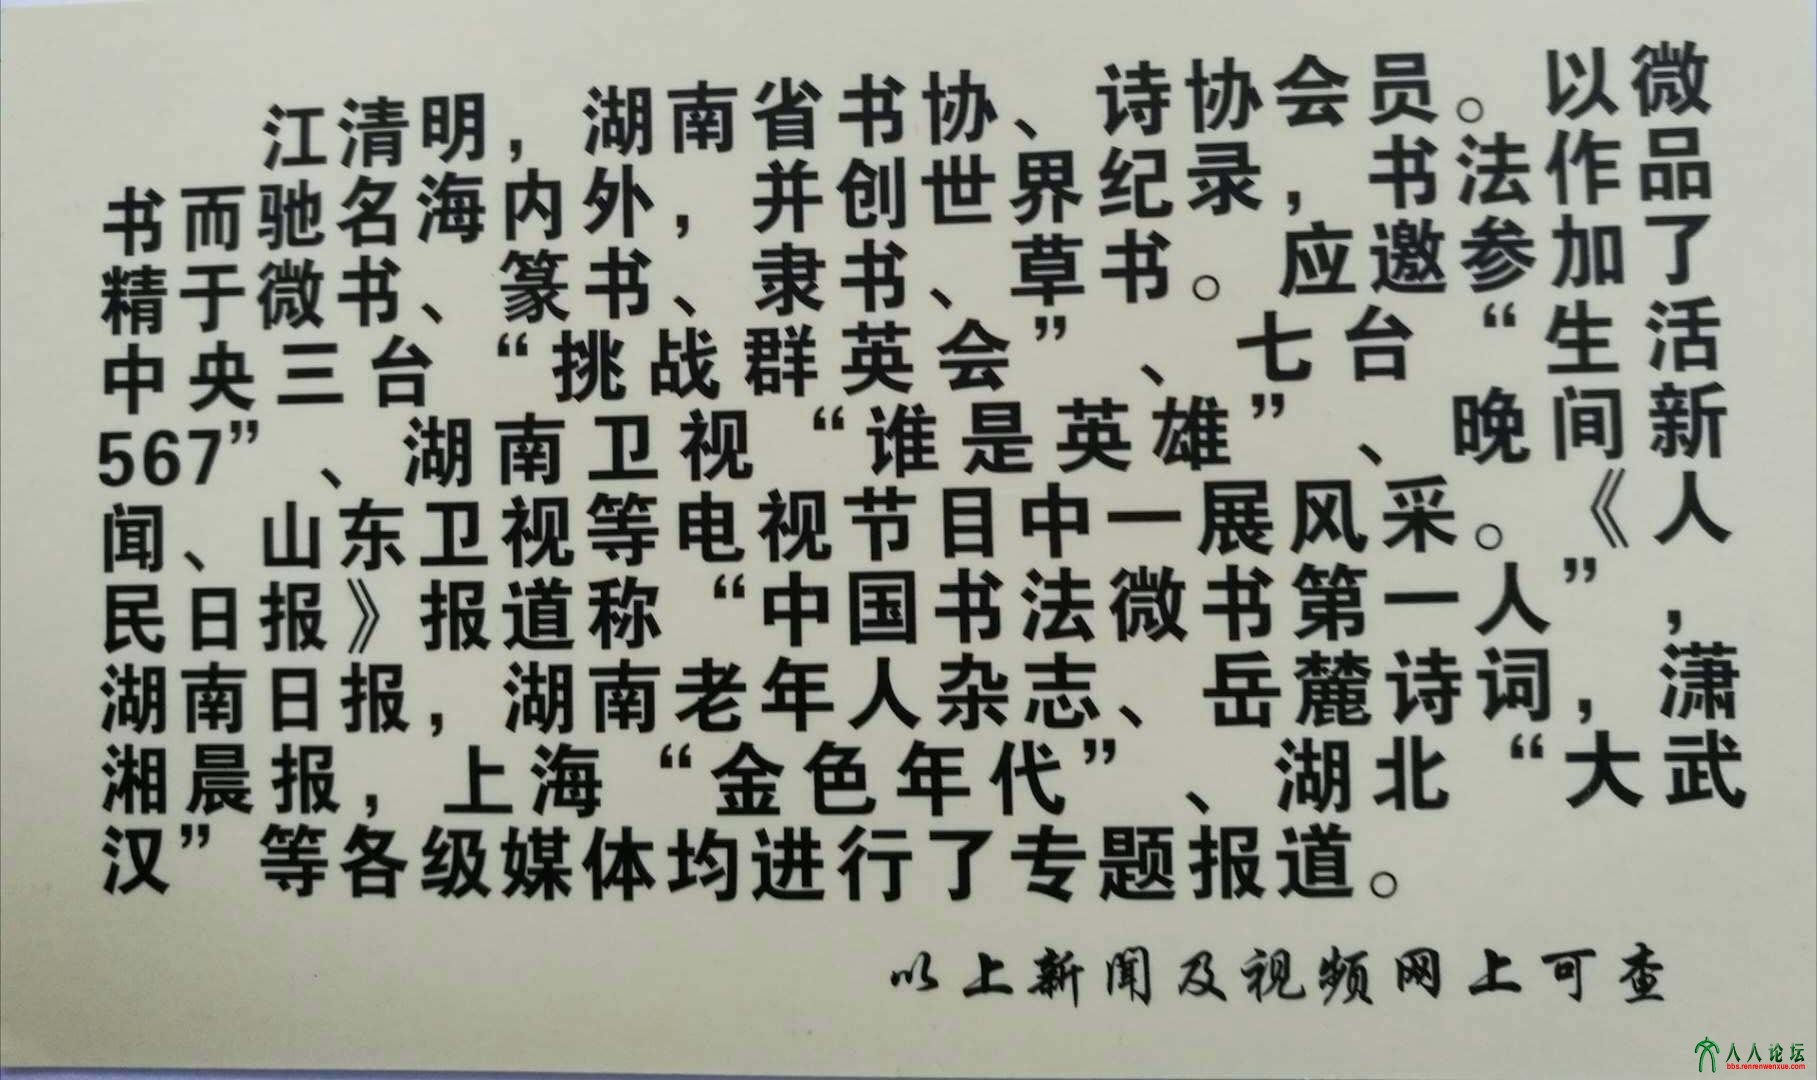 江清明，湖南省书协、诗协会员。以微
书而驰名海内外，并创世界纪录，书法作品
精于微书、篆书、隶书、草书。应邀参加了
中央三台“挑战群英会”、七台“生活
567”、湖南卫视“谁是英雄”、晚间新
闻、山东卫视等电视节目中一展风采。《人
民日报》报道称“中国书法微书第一人”，
湖南日报，湖南老年人杂志、岳麓诗词，潇
湘晨报，上海“金色年代”、湖北“大武
汉”等各级媒体均进行了专题报道。
以上新闻及视频网上可查
人人论坛
bbs.renrenwenxue.com